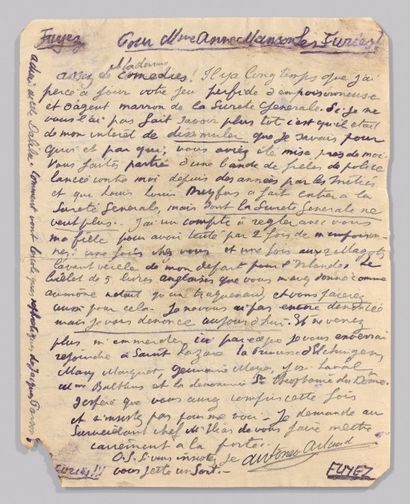 Fuyez Pour Mme Anne Manson Les Furies!
Madame
assez de comédies! Il y a longtemps que j'ai
percé à jour votre jeu perfide d'empoisonneuse
et d'agent marron de la Sureté Générale. Si je ne
vous l'ai pas fait savoir plus tot c'est qu'il était
de mon intérêt de dissimuler que je savais pour
qui et par qui vous aviez été mise près de moi.
Vous faites partie d'une bande de filles de police
lancée contre moi depuis des années par les Initiés
et que Louis Louis-Dreyfus a fait entrer à la
Sureté Générale, mais dont la Sureté Générale ne
veut plus. J'ai un compte à régler avec vous
ma fille pour avoir tenté par 2 fois de m'empoison
ner. une fois chez vous et une fois aux 2 Magots
l'avant veille de mon départ pour l'Irlande. Le
billet de 5 livres anglaises que vous m'avez donné comme
aumône n'était qu'un traquenard et vous paierez
aussi pour cela. Je ne vous ai pas encore dénoncé
mais je vous dénonce aujourd'hui. Et ne venez
plus m'emmerder ici parce que je vous enverrai
rejoindre à Saint Lazare
Mary Marquet, Germaine Meyer, José Laval,
Mme Balthus et la dénommée Ste Théophanie des Dames.
J'espère que vous aurez compris cette fois
et n'insisterez pas pour me voir. Je demande au
Surveillant chef Mr de vous faire mettre
carrément à la porte.
Antonin Artaud
P.S. Si vous insistez, je
vous jette un Sort.
Furies!!! FUYEZ